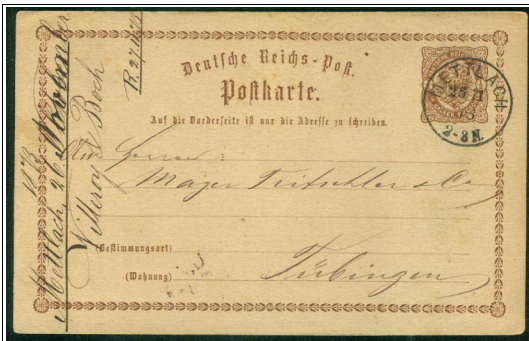 Deutsche Reichs-Post.
Postkarte.
Auf die Vorderseite ist nur die Adresse zu schreiben.
METTLACH
26 11
2-3 N.
An Herren
Mayer Tritschler & Co
(Bestimmungsort)
(Wohnung)
Tübingen
1873
Mettlach, 26 November
Villeroy & Boch